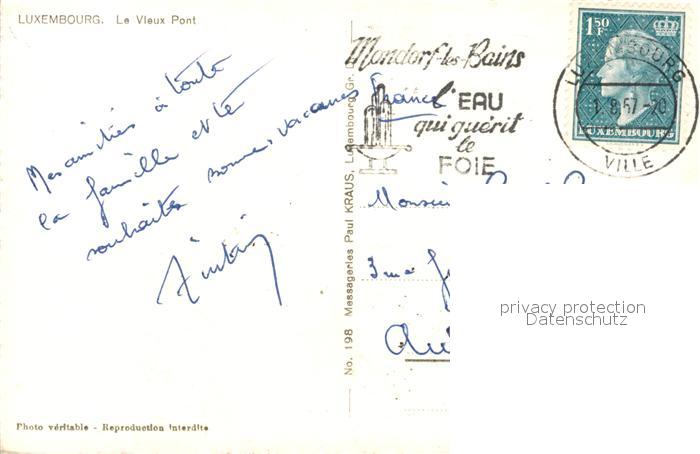 LUXEMBOURG. Le Vieux Pont
Mes amitiés à toute
la famille et te
souhaite bonnes vacances
No. 198 Messageries Paul KRAUS, Luxembourg-Gr.
Photo véritable - Reproduction interdite
Mondorf-les-Bains
l'EAU
qui guérit
le
FOIE
1.50
F
LUXEMBOURG
LUXEMBOURG
1.8.57-20
VILLE
France
Monsieu
3 rue
privacy protection
Datenschutz